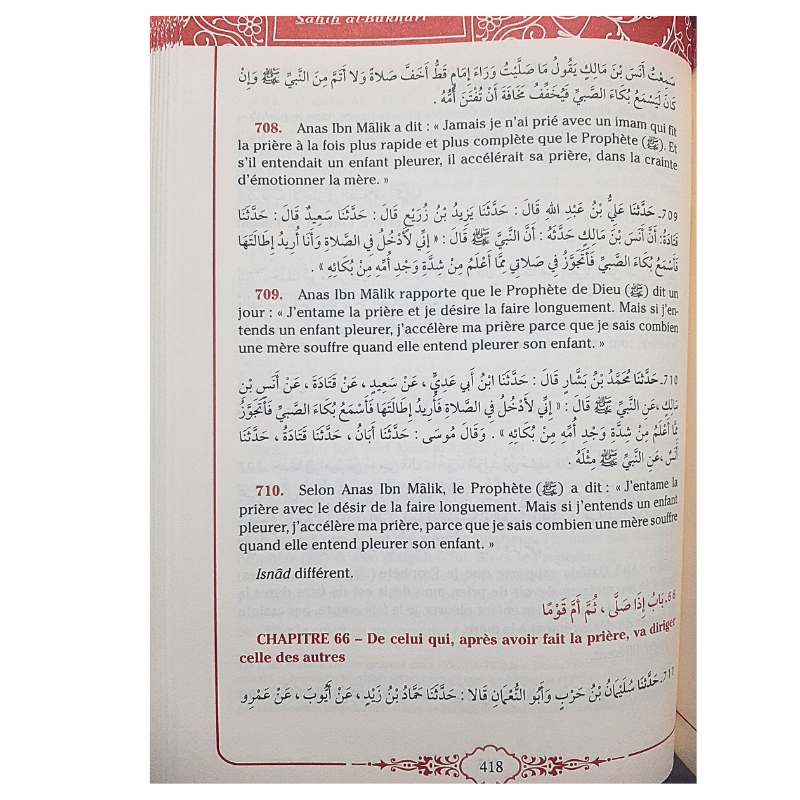 Sahih al-Bukhârî
سَمِعْتُ أَنَسَ بْنَ مَالِكٍ يَقُولُ مَا صَلَّيْتُ وَرَاءَ إِمَامٍ قَطُّ أَخَفَّ صَلاَةً وَلاَ أَتَمَّ مِنَ النَّبِيِّ ﷺ وَإِنْ
كَانَ لَيَسْمَعُ بُكَاءَ الصَّبِيِّ فَيُخَفِّفُ مَخَافَةَ أَنْ تُفْتَنَ أُمُّهُ .
708. Anas Ibn Mâlik a dit : « Jamais je n'ai prié avec un imam qui fît
la prière à la fois plus rapide et plus complète que le Prophète (ﷺ). Et
s'il entendait un enfant pleurer, il accélérait sa prière, dans la crainte
d'émotionner la mère. »
709- حَدَّثَنَا عَلِيُّ بْنُ عَبْدِ اللهِ قَالَ : حَدَّثَنَا يَزِيدُ بْنُ زُرَيْعٍ قَالَ : حَدَّثَنَا سَعِيدٌ قَالَ : حَدَّثَنَا
قَتَادَةُ: أَنَّ أَنَسَ بْنَ مَالِكٍ حَدَّثَهُ : أَنَّ النَّبِيَّ ﷺ قَالَ : « إِنِّي لَأَدْخُلُ فِي الصَّلاَةِ وَأَنَا أُرِيدُ إِطَالَتَهَا
فَأَسْمَعُ بُكَاءَ الصَّبِيِّ فَأَتَجَوَّزُ فِي صَلاَتِي مِمَّا أَعْلَمُ مِنْ شِدَّةِ وَجْدِ أُمِّهِ مِنْ بُكَائِهِ » .
709. Anas Ibn Mâlik rapporte que le Prophète de Dieu (ﷺ) dit un
jour : « J'entame la prière et je désire la faire longuement. Mais si j'en-
tends un enfant pleurer, j'accélère ma prière parce que je sais combien
une mère souffre quand elle entend pleurer son enfant. »
710- حَدَّثَنَا مُحَمَّدُ بْنُ بَشَّارٍ قَالَ : حَدَّثَنَا ابْنُ أَبِي عَدِيٍّ ، عَنْ سَعِيدٍ ، عَنْ قَتَادَةَ ، عَنْ أَنَسِ بْنِ
مَالِكٍ ،عَنِ النَّبِيِّ ﷺ قَالَ : « إِنِّي لَأَدْخُلُ فِي الصَّلاَةِ فَأُرِيدُ إِطَالَتَهَا فَأَسْمَعُ بُكَاءَ الصَّبِيِّ فَأَتَجَوَّزُ
مِمَّا أَعْلَمُ مِنْ شِدَّةِ وَجْدِ أُمِّهِ مِنْ بُكَائِهِ » . وَقَالَ مُوسَى : حَدَّثَنَا أَبَانُ ، حَدَّثَنَا قَتَادَةُ ، حَدَّثَنَا
أَنَسٌ ،عَنِ النَّبِيِّ ﷺ مِثْلَهُ .
710. Selon Anas Ibn Mâlik, le Prophète (ﷺ) a dit : « J'entame la
prière avec le désir de la faire longuement. Mais si j'entends un enfant
pleurer, j'accélère ma prière, parce que je sais combien une mère souffre
quand elle entend pleurer son enfant. »
Isnâd différent.
66- بَابُ إِذَا صَلَّى ، ثُمَّ أَمَّ قَوْمًا
CHAPITRE 66 – De celui qui, après avoir fait la prière, va diriger
celle des autres
711- حَدَّثَنَا سُلَيْمَانُ بْنُ حَرْبٍ وَأَبُو النُّعْمَانِ قَالا : حَدَّثَنَا حَمَّادُ بْنُ زَيْدٍ ، عَنْ أَيُّوبَ ، عَنْ عَمْرِو
418